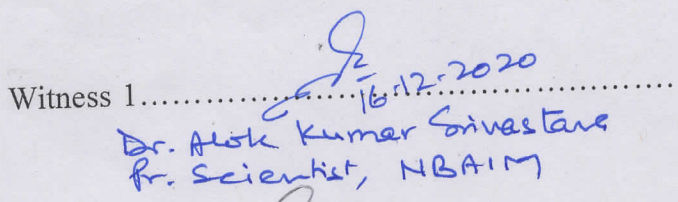 Witness 1.......................................................
16.12.2020
Dr. Alok Kumar Srivastava
Pr. Scientist, NBAIM